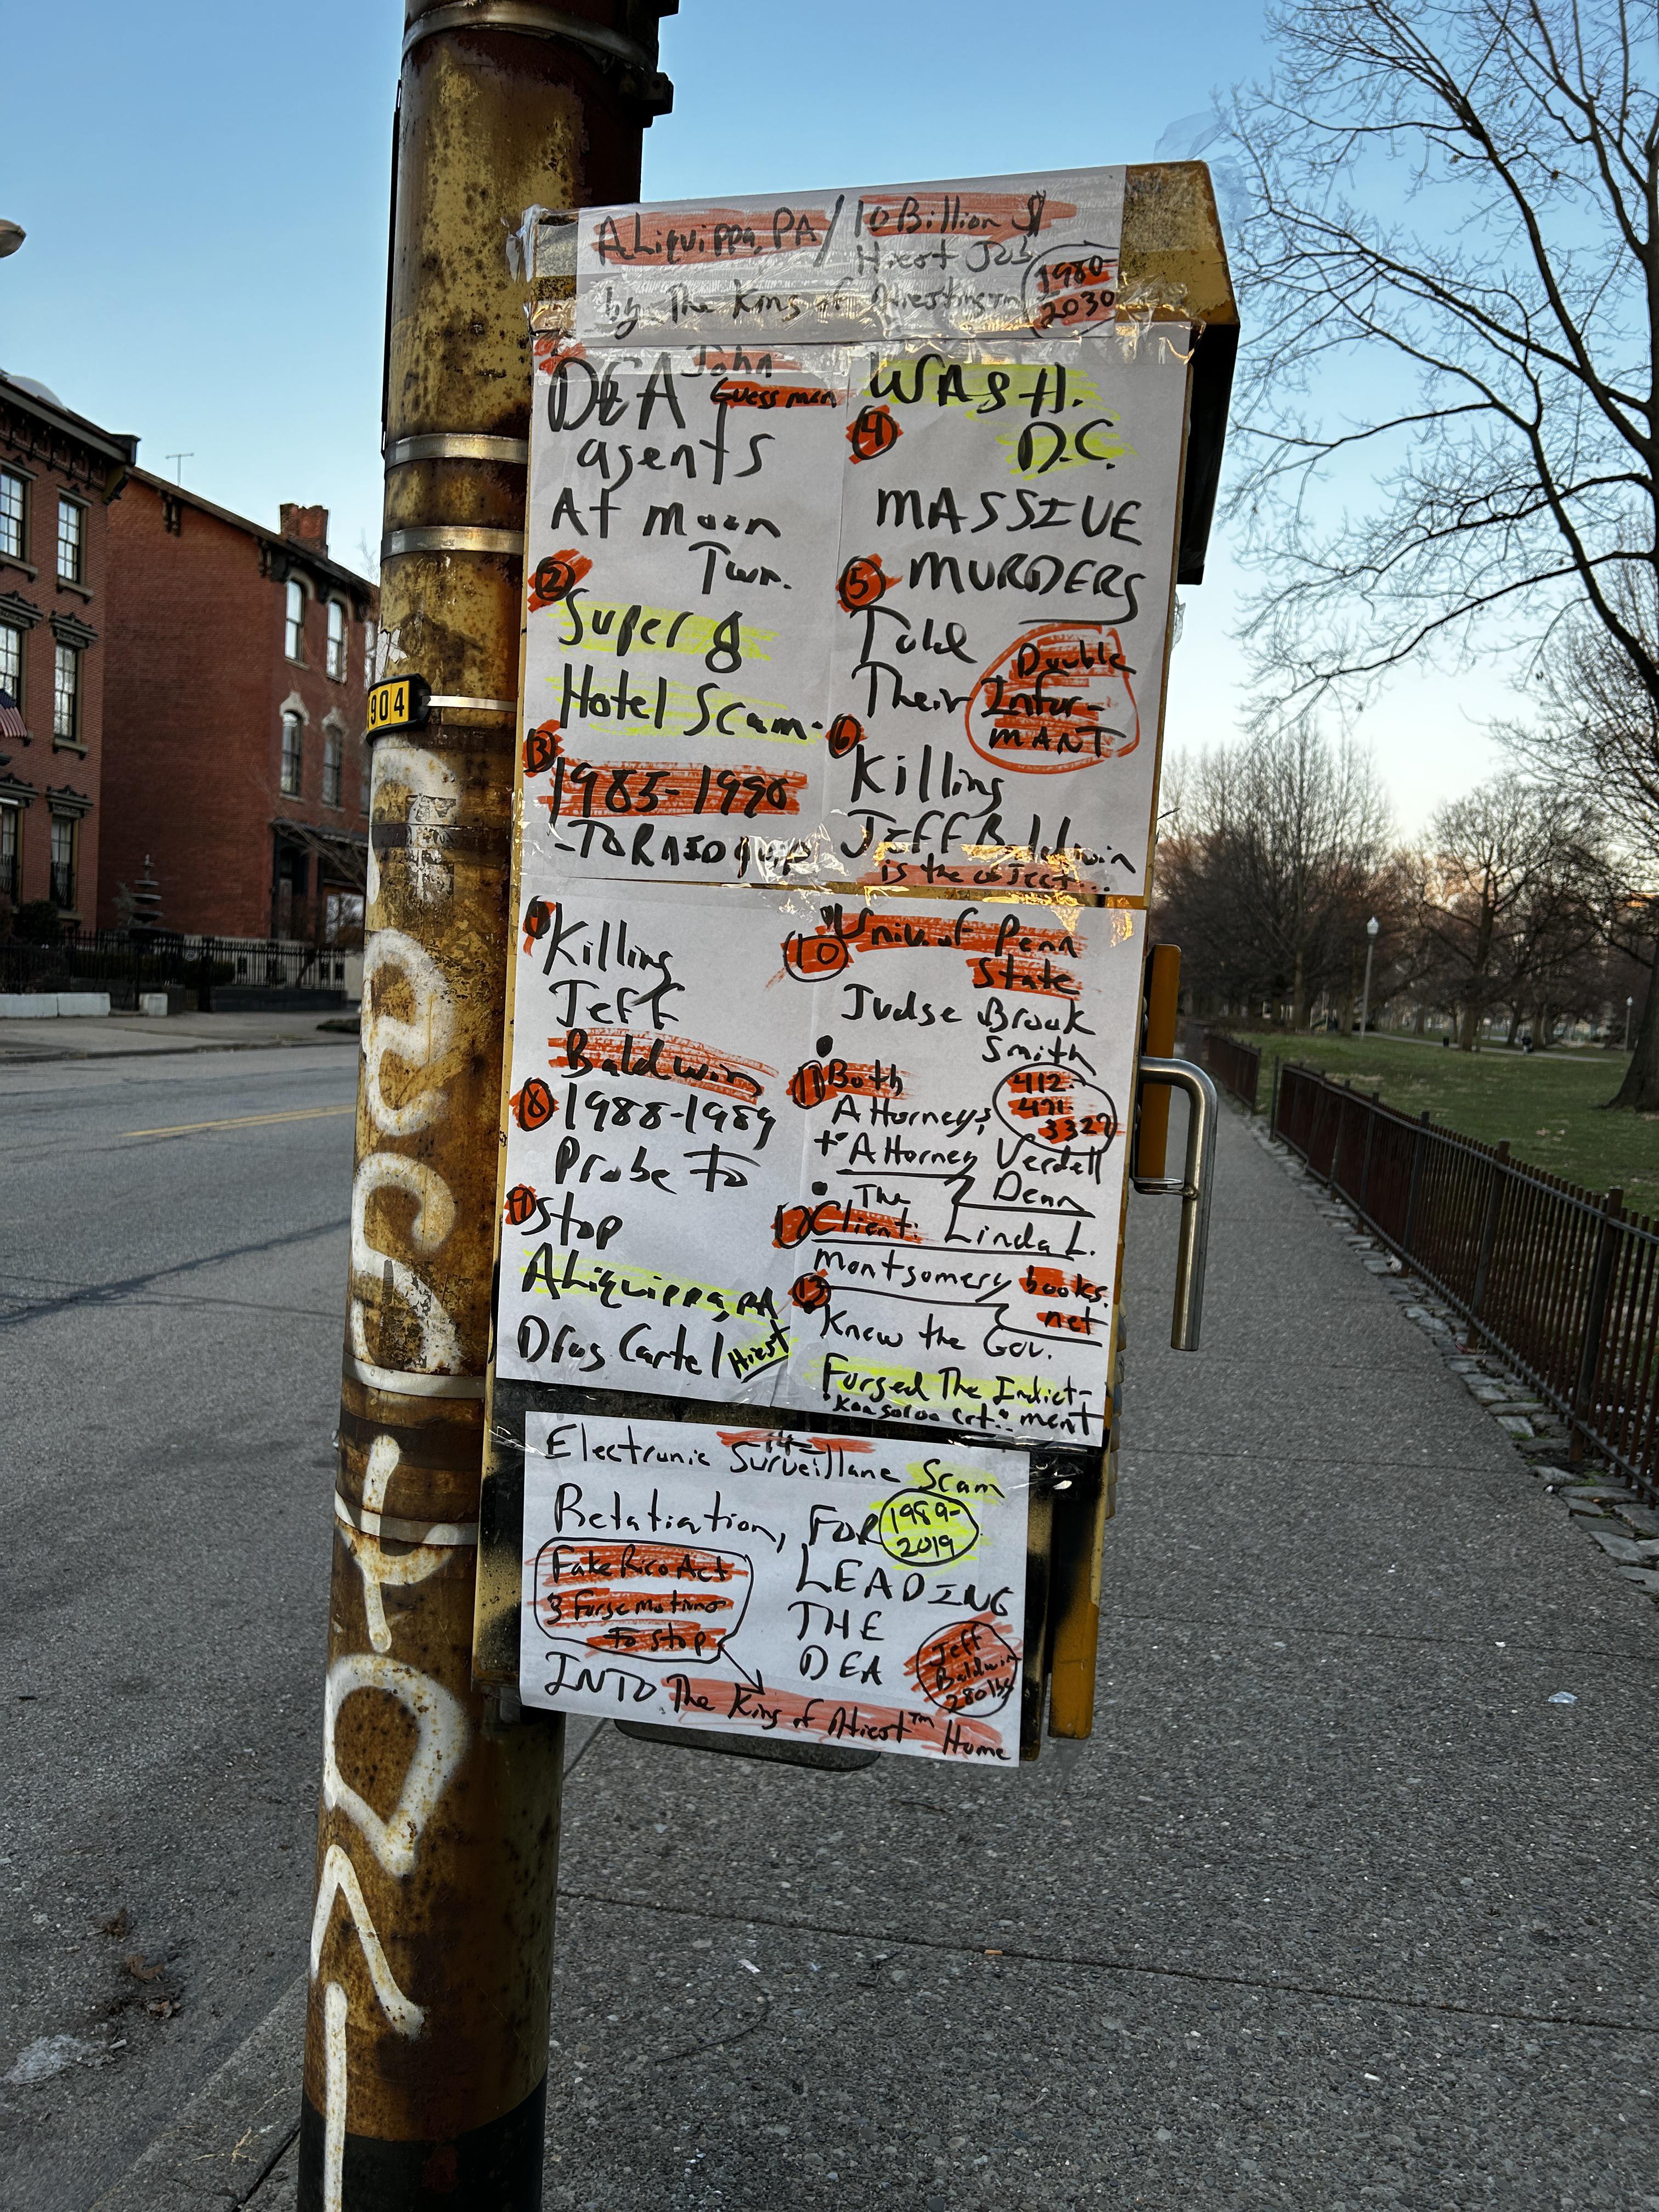 Aliquippa, PA / 10 Billion $
Hiest Job
by The King of
1980-
2030
John
DEA Guess man
agents
At Moon
Twn.
2
Super 8
Hotel Scam.
3
1985-1990
WASH.
4
D.C.
MASSIVE
5 MURDERS
Told
Their
Double
Infor-
MANT
6
Killing
Jeff Baldwin
is the object...
Killing
Jeff
Baldwin
8 1988-1989
Probe To
9 Stop
Aliquippa, PA
Drug Cartel Hiest
10 Univ. of Penn
State
Judge Brook
Smith
11 Both
Attorneys,
+ Attorney Verdell
Dean
412-
471-
3327
The
12 Client: Linda L.
Montgomery books.
net
13
Knew the Gov.
Forged The Indict-
ment
14
Electronic Surveillane Scam
Retatiation, FOR
1989-
2019
Fake Rico Act
To Stop
LEADING
THE
DEA
Jeff
Baldwin
280 lbs
INTO The King of Hiest™ Home
904